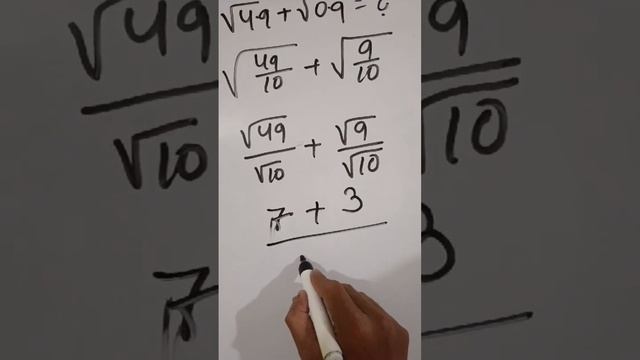 √49 + √09 = ?
√(49/10) + √(9/10)
√49/√10 + √9/√10
7 + 3